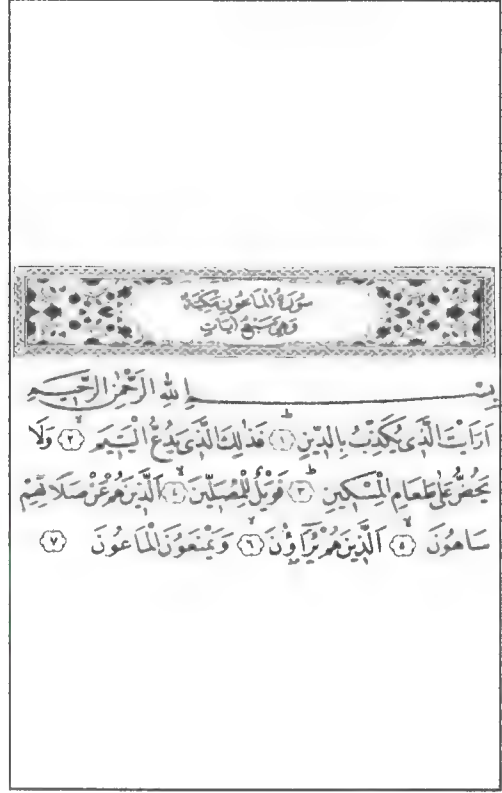 سُورَةُ الْمَاعُونِ مَكِّيَّةٌ
وَهِيَ سَبْعُ اٰيَاتٍ
بِسْمِ اللّٰهِ الرَّحْمٰنِ الرَّحِيمِ
اَرَاَيْتَ الَّذِى يُكَذِّبُ بِالدِّينِ ﴿١﴾ فَذٰلِكَ الَّذِى يَدُعُّ الْيَتِيمَ ﴿٢﴾ وَلَا
يَحُضُّ عَلٰى طَعَامِ الْمِسْكِينِ ﴿٣﴾ فَوَيْلٌ لِلْمُصَلِّينَ ﴿٤﴾ اَلَّذِينَ هُمْ عَنْ صَلَاتِهِمْ
سَاهُونَ ﴿٥﴾ اَلَّذِينَ هُمْ يُرَاؤُنَ ﴿٦﴾ وَيَمْنَعُونَ الْمَاعُونَ ﴿٧﴾